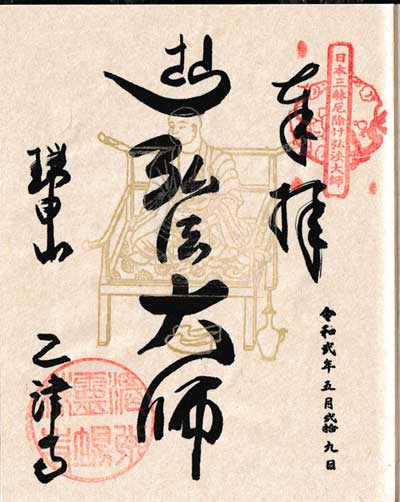 日本三躰厄除け弘法大師
奉拝
令和弐年五月弐拾九日
弘法大師
瑞甲山
乙津寺